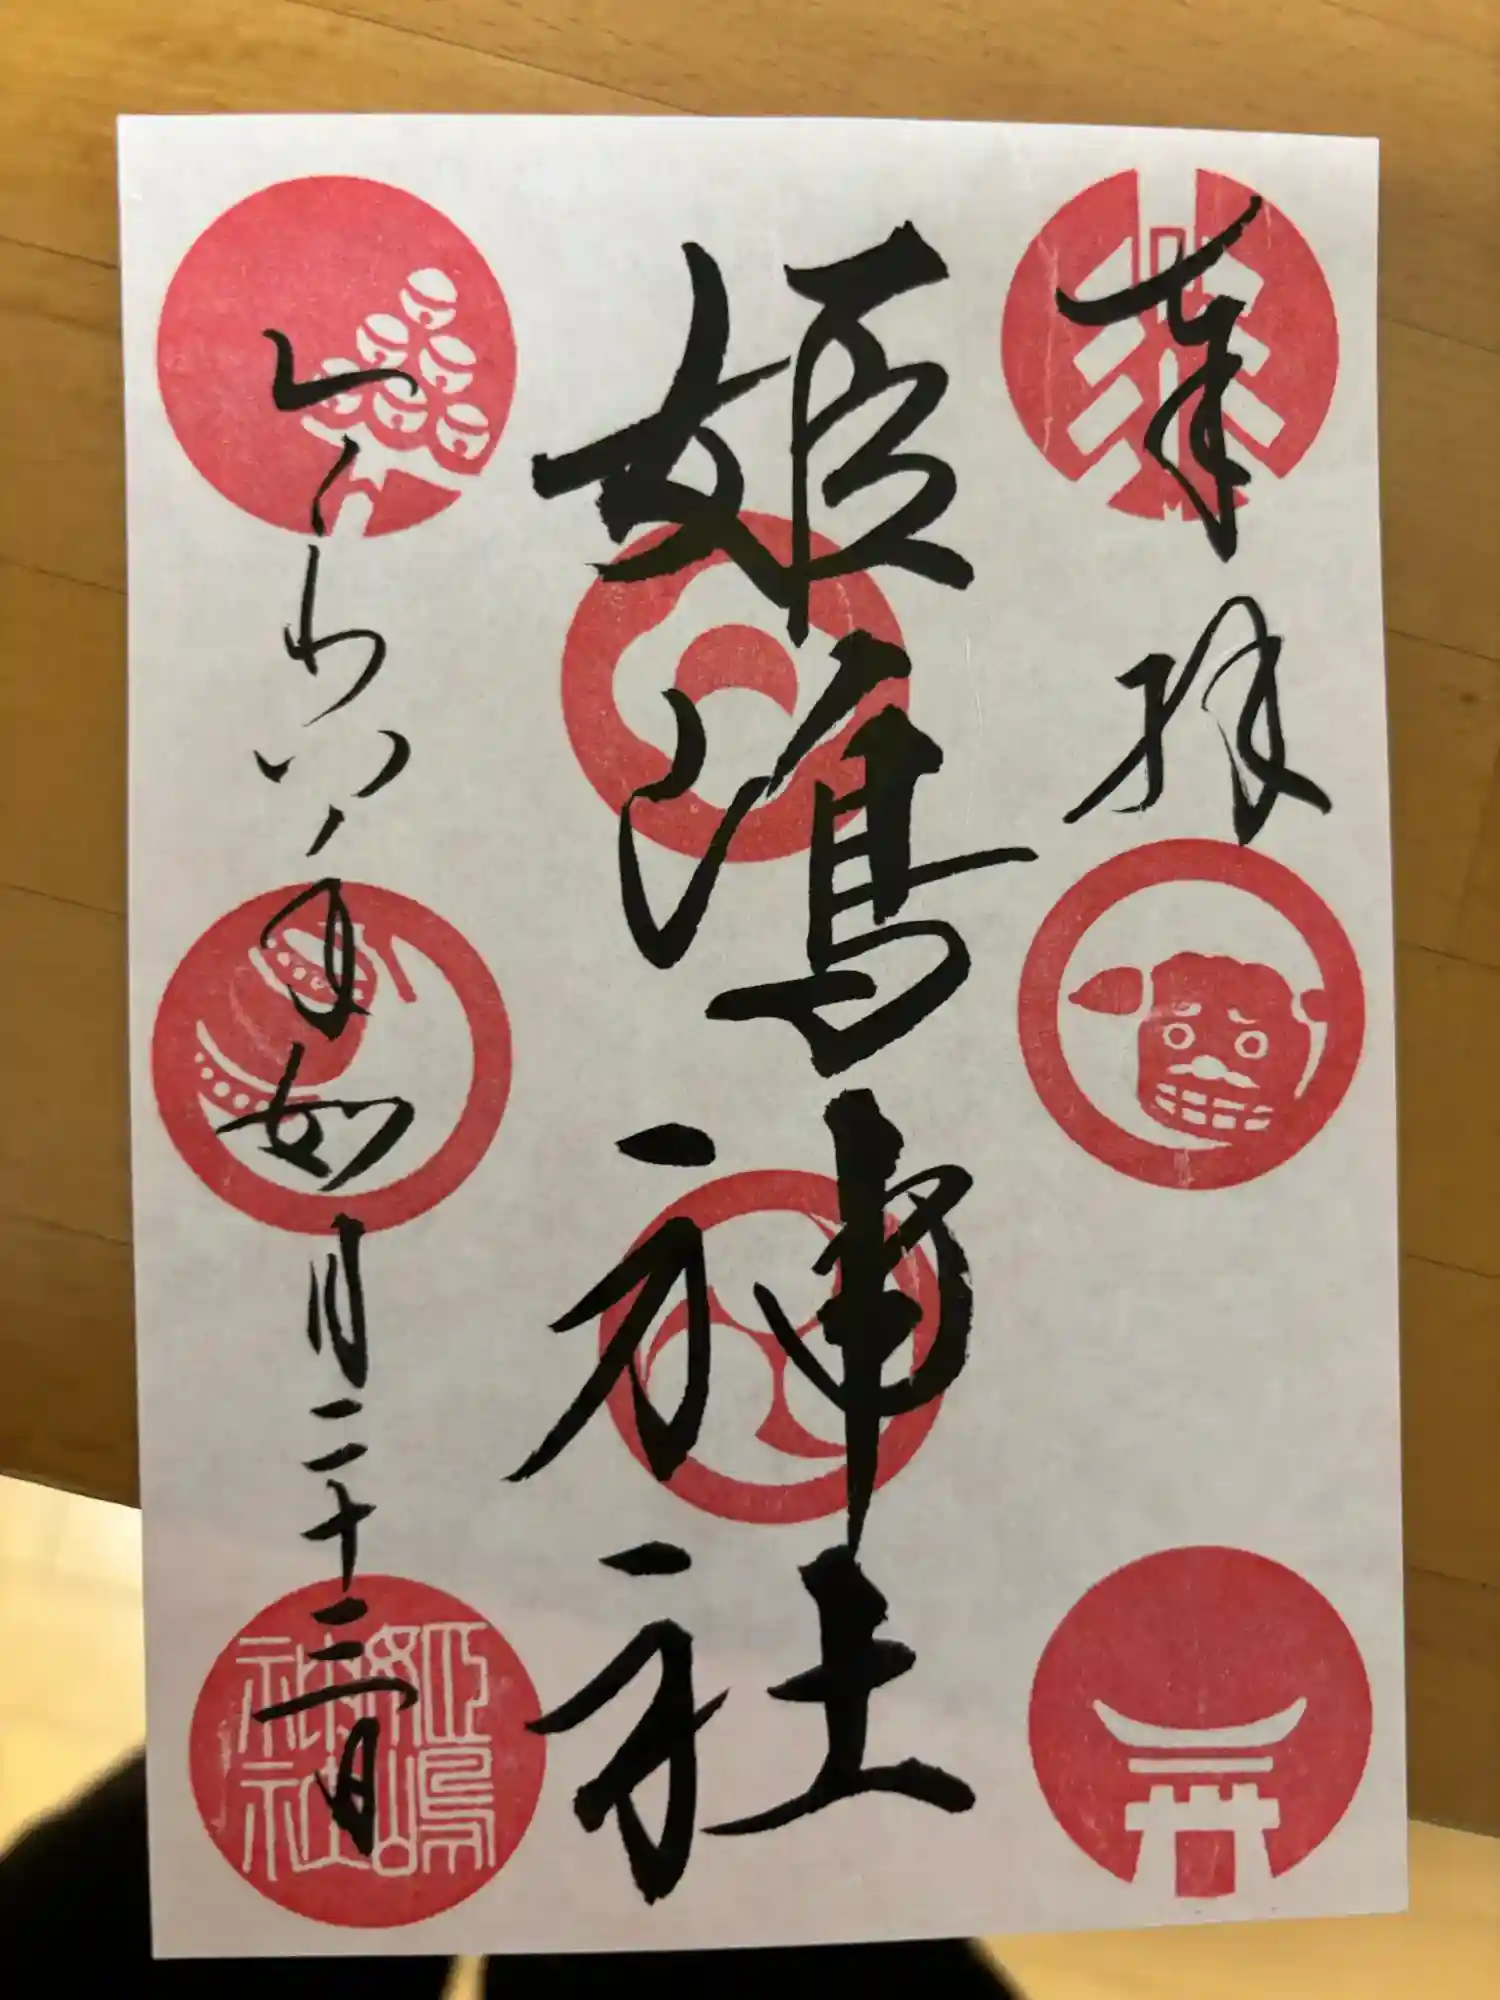 奉拝
姫嶋神社
令和八年如月二十三日
姫嶋
神社